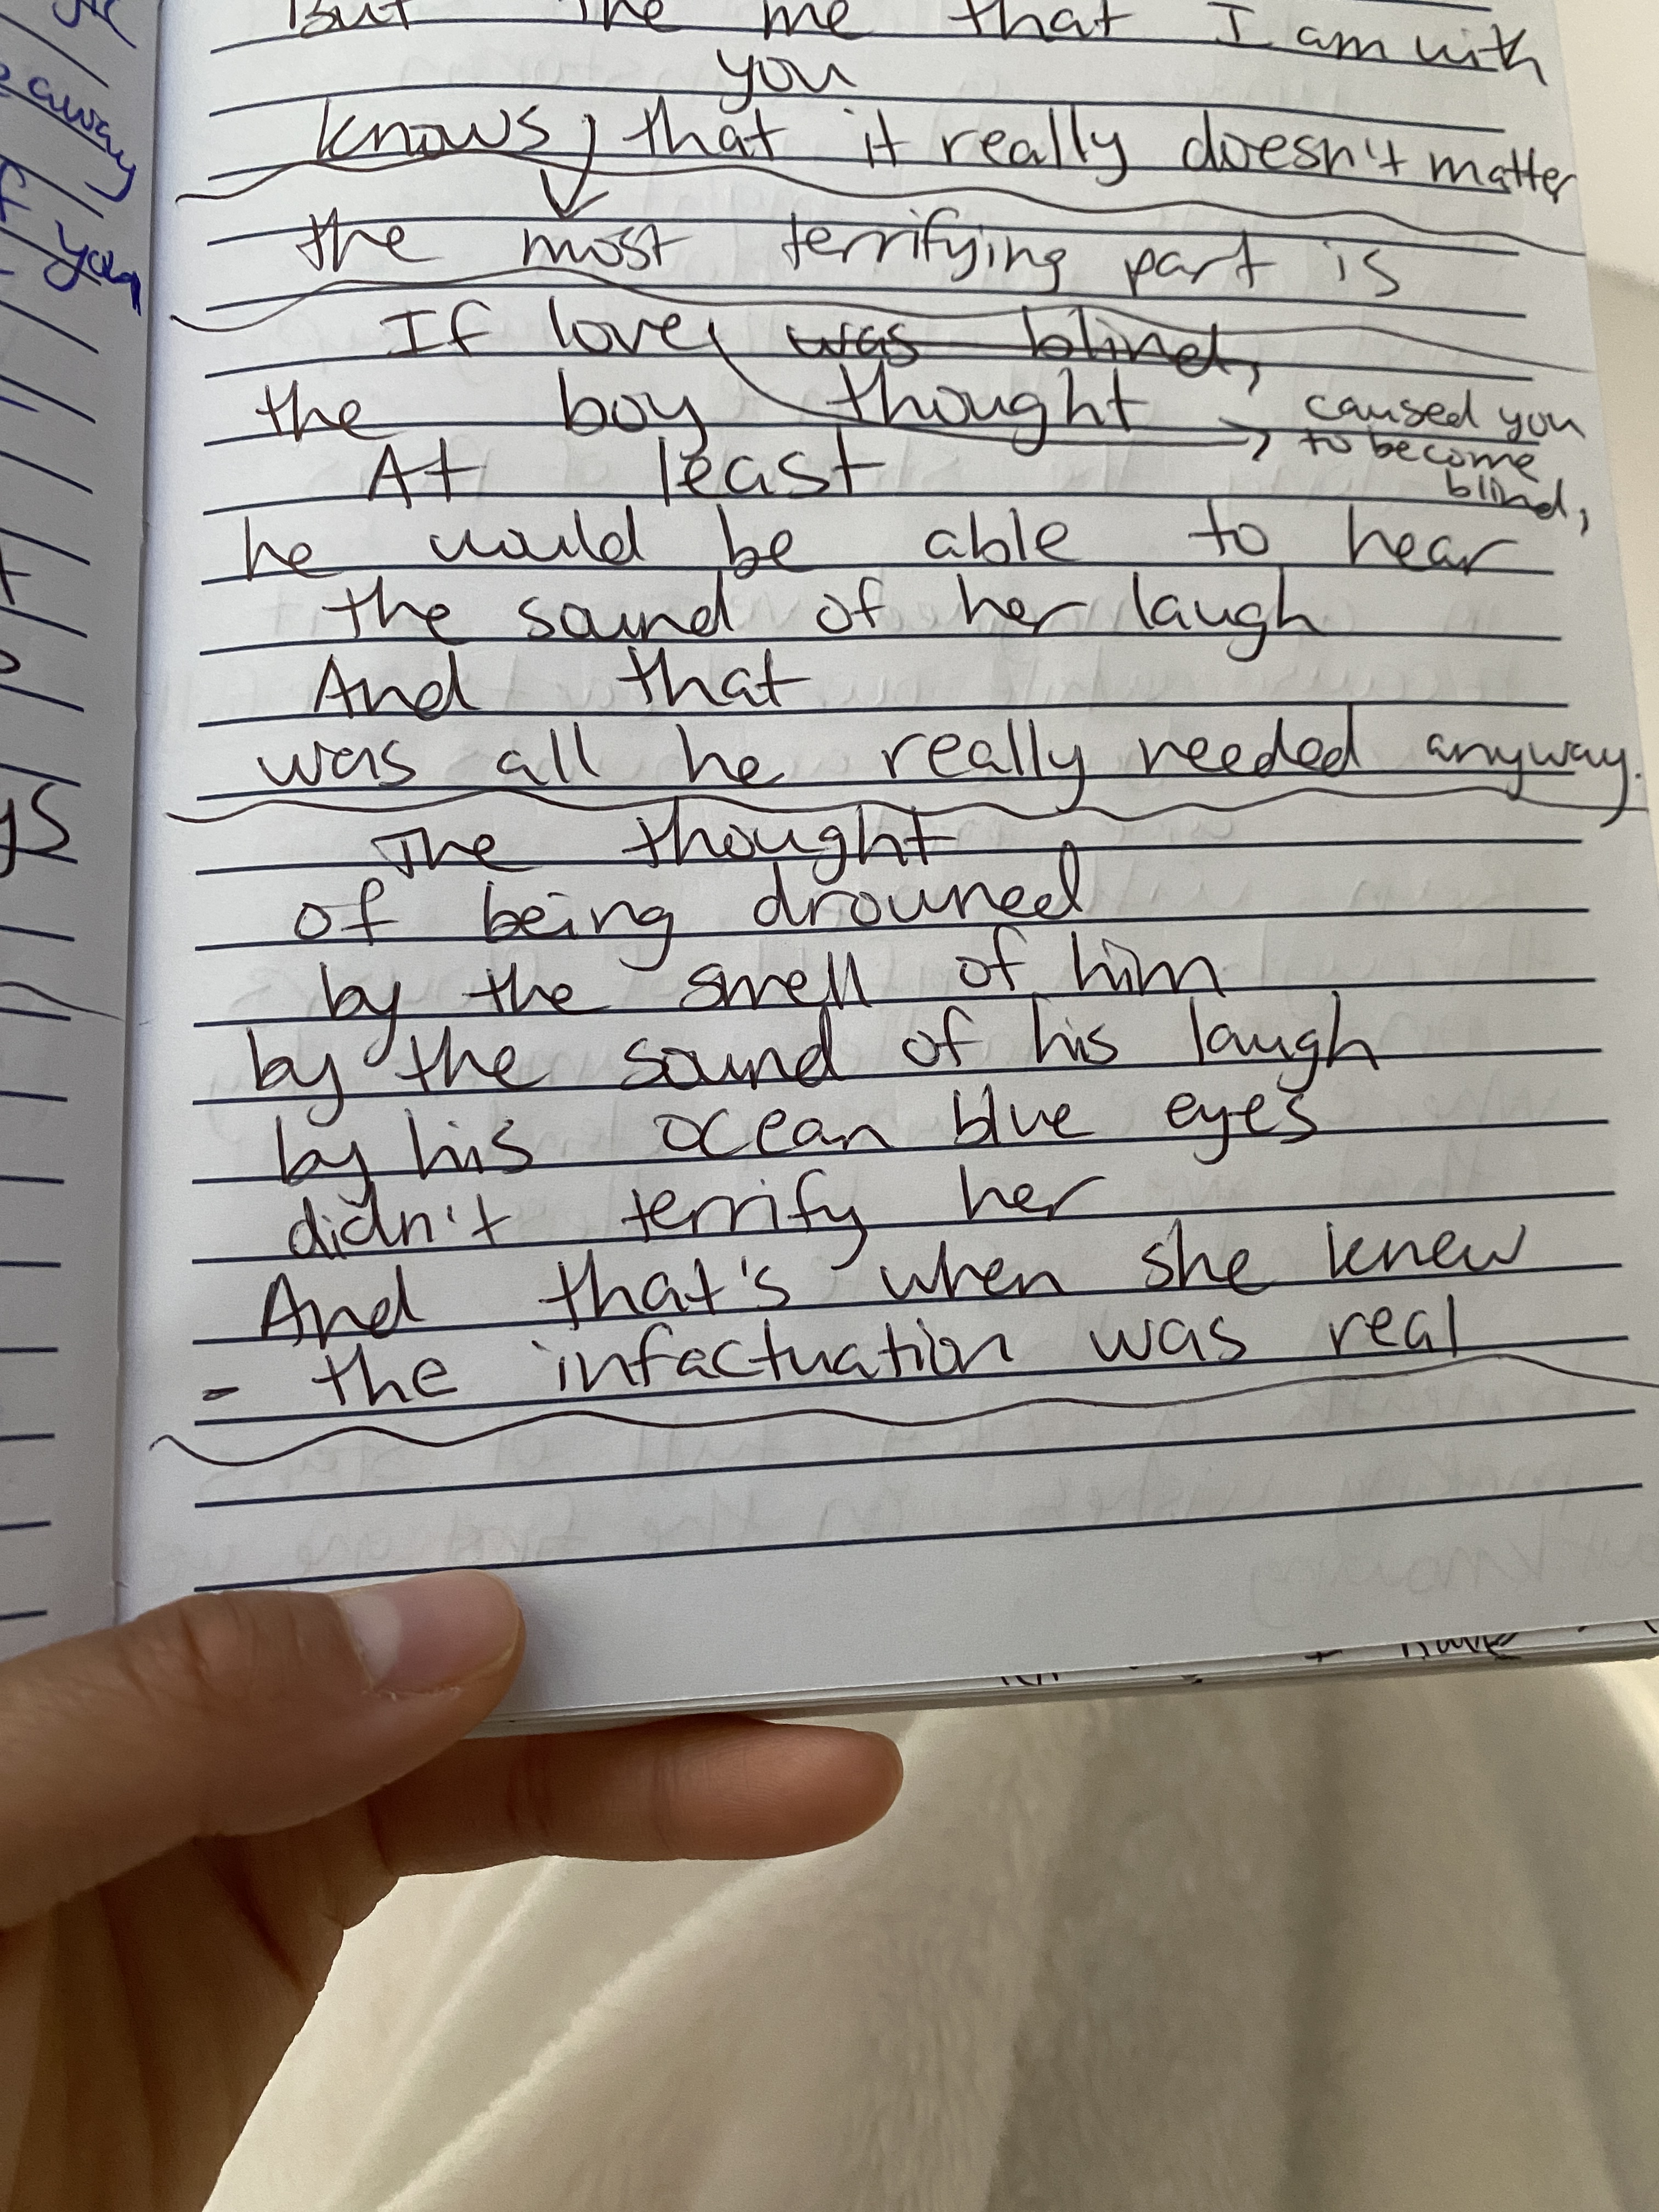 away
f you
ys
But the me that I am with
you
knows, that it really doesn't matter
the most terrifying part is
If love was blind,
the boy thought
caused you
to become
blind,
At least
he would be able to hear
the sound of her laugh
And that
was all he really needed anyway.
The thought
of being drowned
by the smell of him
by the sound of his laugh
by his ocean blue eyes
didn't terrify her
And that's when she knew
- the infactuation was real